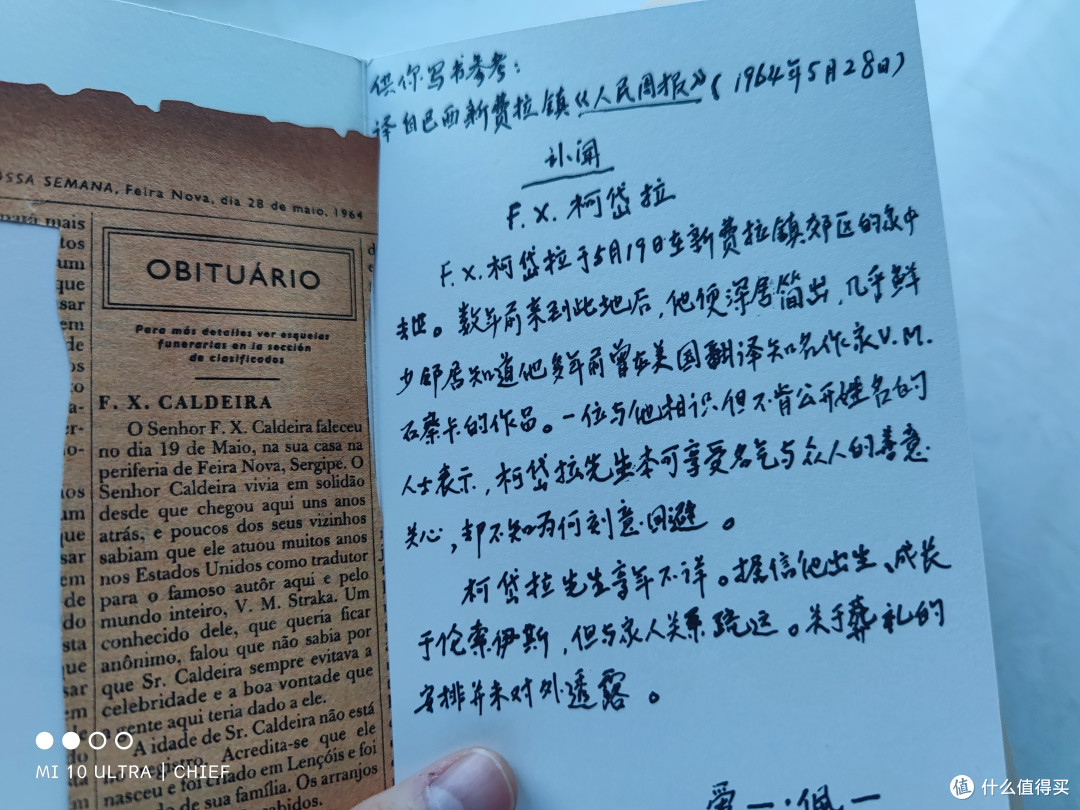 OSSA SEMANA, Feira Nova, dia 28 de maio, 1964
OBITUÁRIO
Para más detalles ver esquelas
funerarias en la sección
de clasificados
F. X. CALDEIRA
O Senhor F. X. Caldeira faleceu
no dia 19 de Maio, na sua casa na
periferia de Feira Nova, Sergipe. O
Senhor Caldeira vivia em solidão
desde que chegou aqui uns anos
atrás, e poucos dos seus vizinhos
sabiam que ele atuou muitos anos
nos Estados Unidos como tradutor
para o famoso autôr aqui e pelo
mundo inteiro, V. M. Straka. Um
conhecido dele, que queria ficar
anônimo, falou que não sabia por
que Sr. Caldeira sempre evitava a
celebridade e a boa vontade que
a gente aqui teria dado a ele.
A idade de Sr. Caldeira não está
registro. Acredita-se que ele
nasceu e foi criado em Lençóis e foi
de sua família. Os arranjos
供你写书参考：
译自巴西新费拉镇《人民周报》（1964年5月28日）
讣闻
F. X. 柯岱拉
F. X. 柯岱拉于5月19日在新费拉镇郊区的家中
去世。数年前来到此地后，他便深居简出，几乎鲜
少邻居知道他多年前曾在美国翻译知名作家V. M.
石察卡的作品。一位与他相识但不肯公开姓名的
人士表示，柯岱拉先生本可享受名气与众人的善意
关心，却不知为何刻意回避。
柯岱拉先生享年不详。据信他出生、成长
于伦索伊斯，但与家人关系疏远。关于葬礼的
安排并未对外透露。
MI 10 ULTRA | CHIEF
值 什么值得买